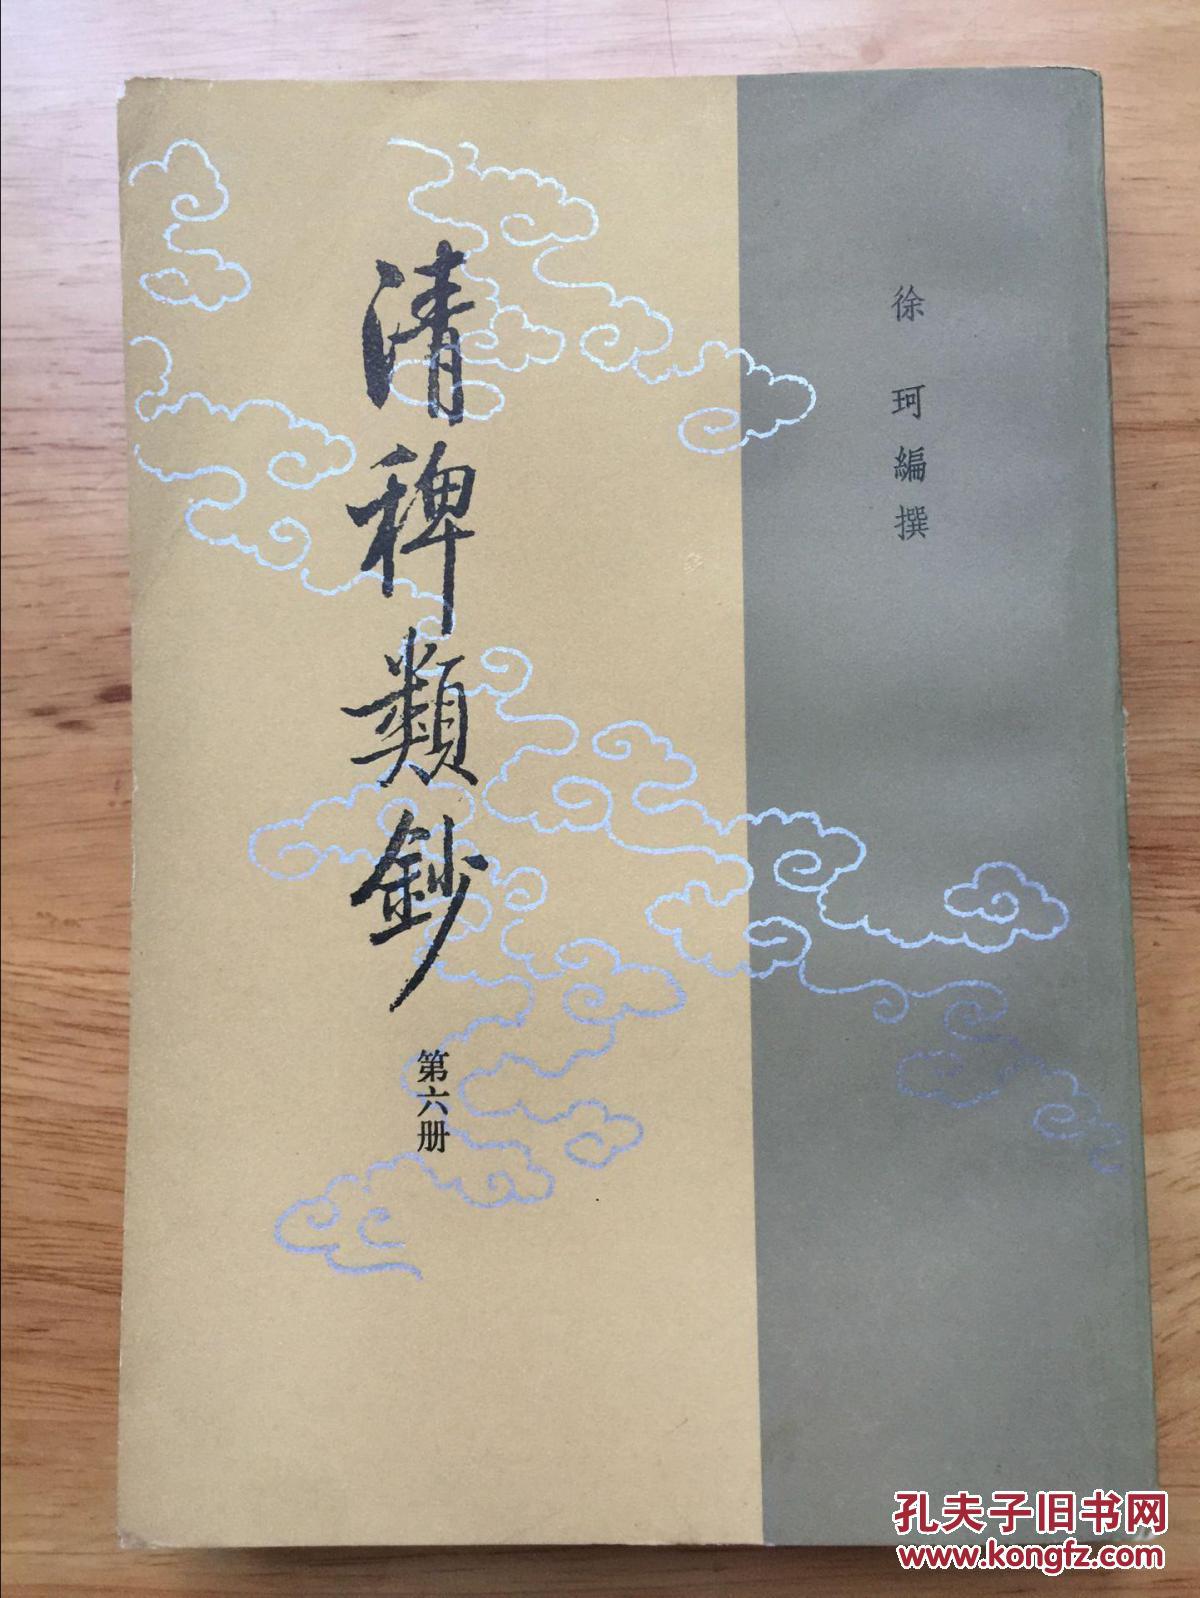 徐珂編撰
清稗類鈔
第六册
孔夫子旧书网
www.kongfz.com